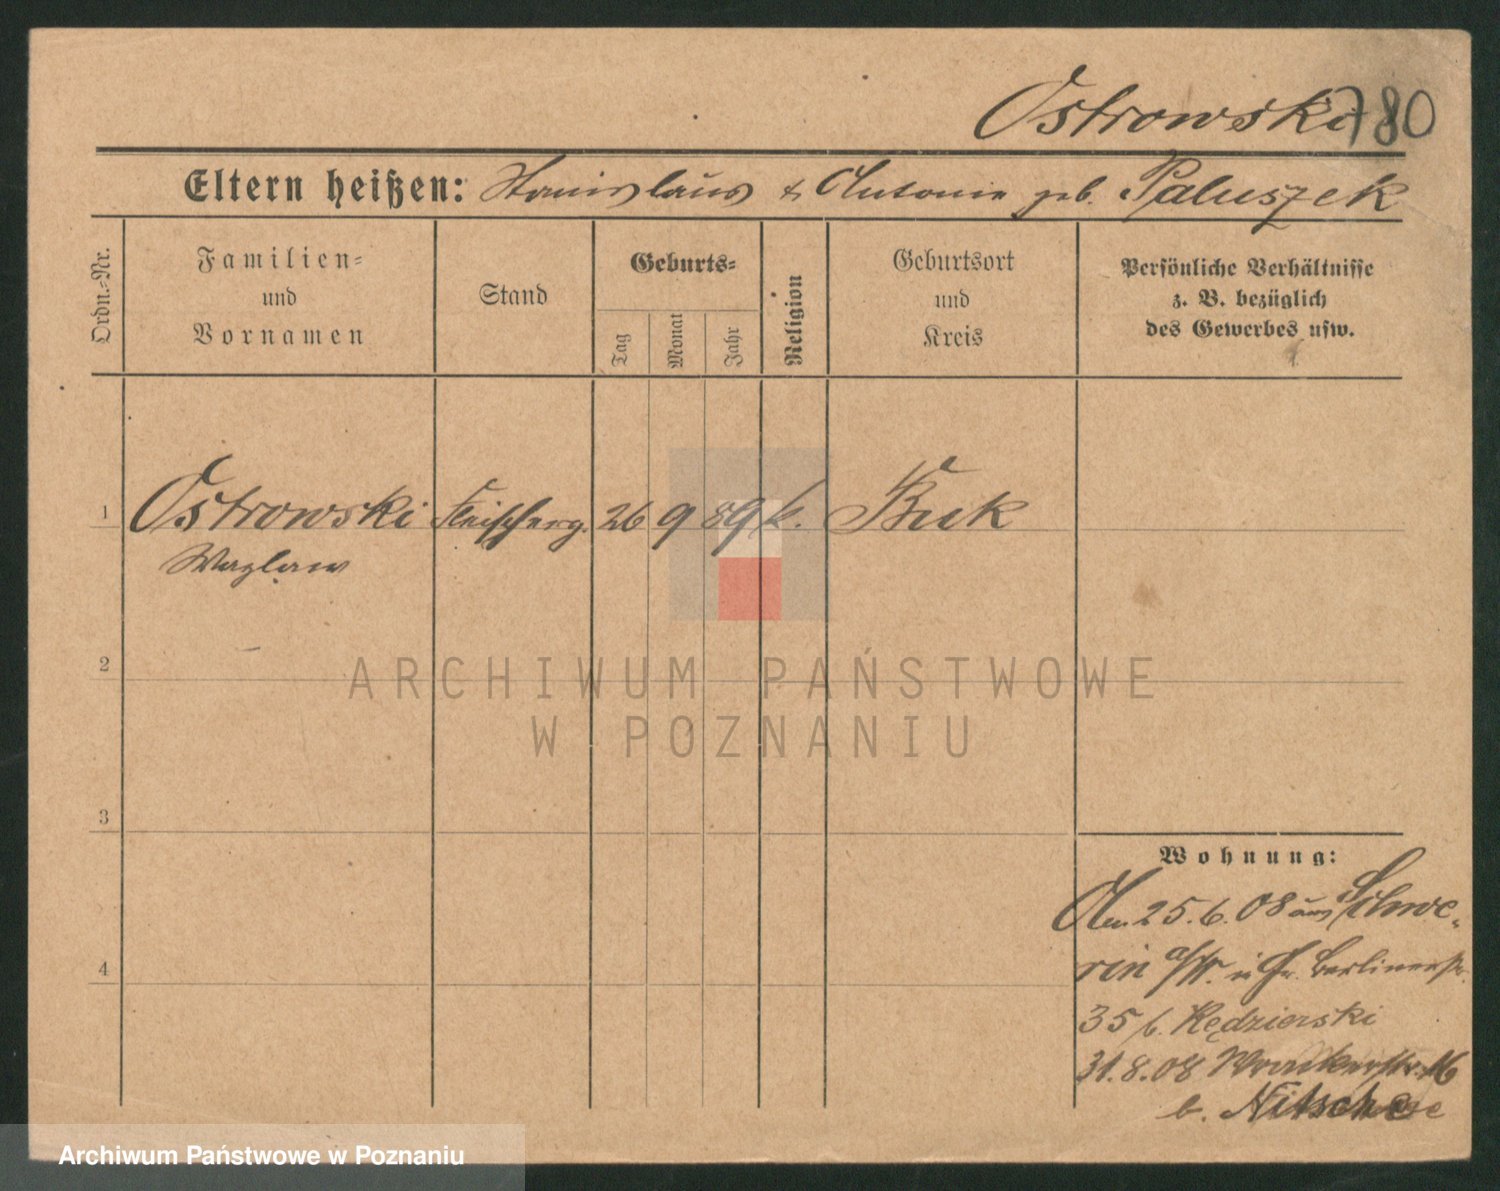 Ostrowski 780
Eltern heißen: Stanislaus & Antonie geb. Paluszek
Ordn.-Nr.
Familien-
und
Vornamen
Stand
Geburts-
Tag
Monat
Jahr
Religion
Geburtsort
und
Kreis
Persönliche Verhältnisse
z. B. bezüglich
des Gewerbes usw.
1 Ostrowski Fleischerg. 26 9 89 k. Buk
Waglaw
2
ARCHIWUM PAŃSTWOWE
W POZNANIU
3
Wohnung:
25.6.08 aus Schwe-
4
rin a/W. Berlinerstr.
35 b. Kędzierski
31.8.08 Wronkerstr. 16
b. Nitsche
Archiwum Państwowe w Poznaniu